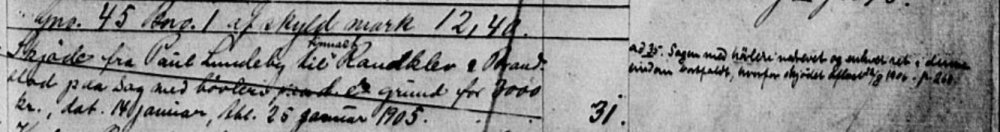 Gno. 45 Bno. 1 af skyld mark 12,40.
Skjøde fra Paul Lundeby til Randklev & Brand-
stad paa Sag med høvleri, grund for 3000
kr., dat. 14 januar, thl. 25 januar 1905.
31.
ad 35. Sagen med høvleri nabeiet og enhver ret i denne
eiendom bortfaldt, hvorfor skjødet aflæst 1906. p. 260.